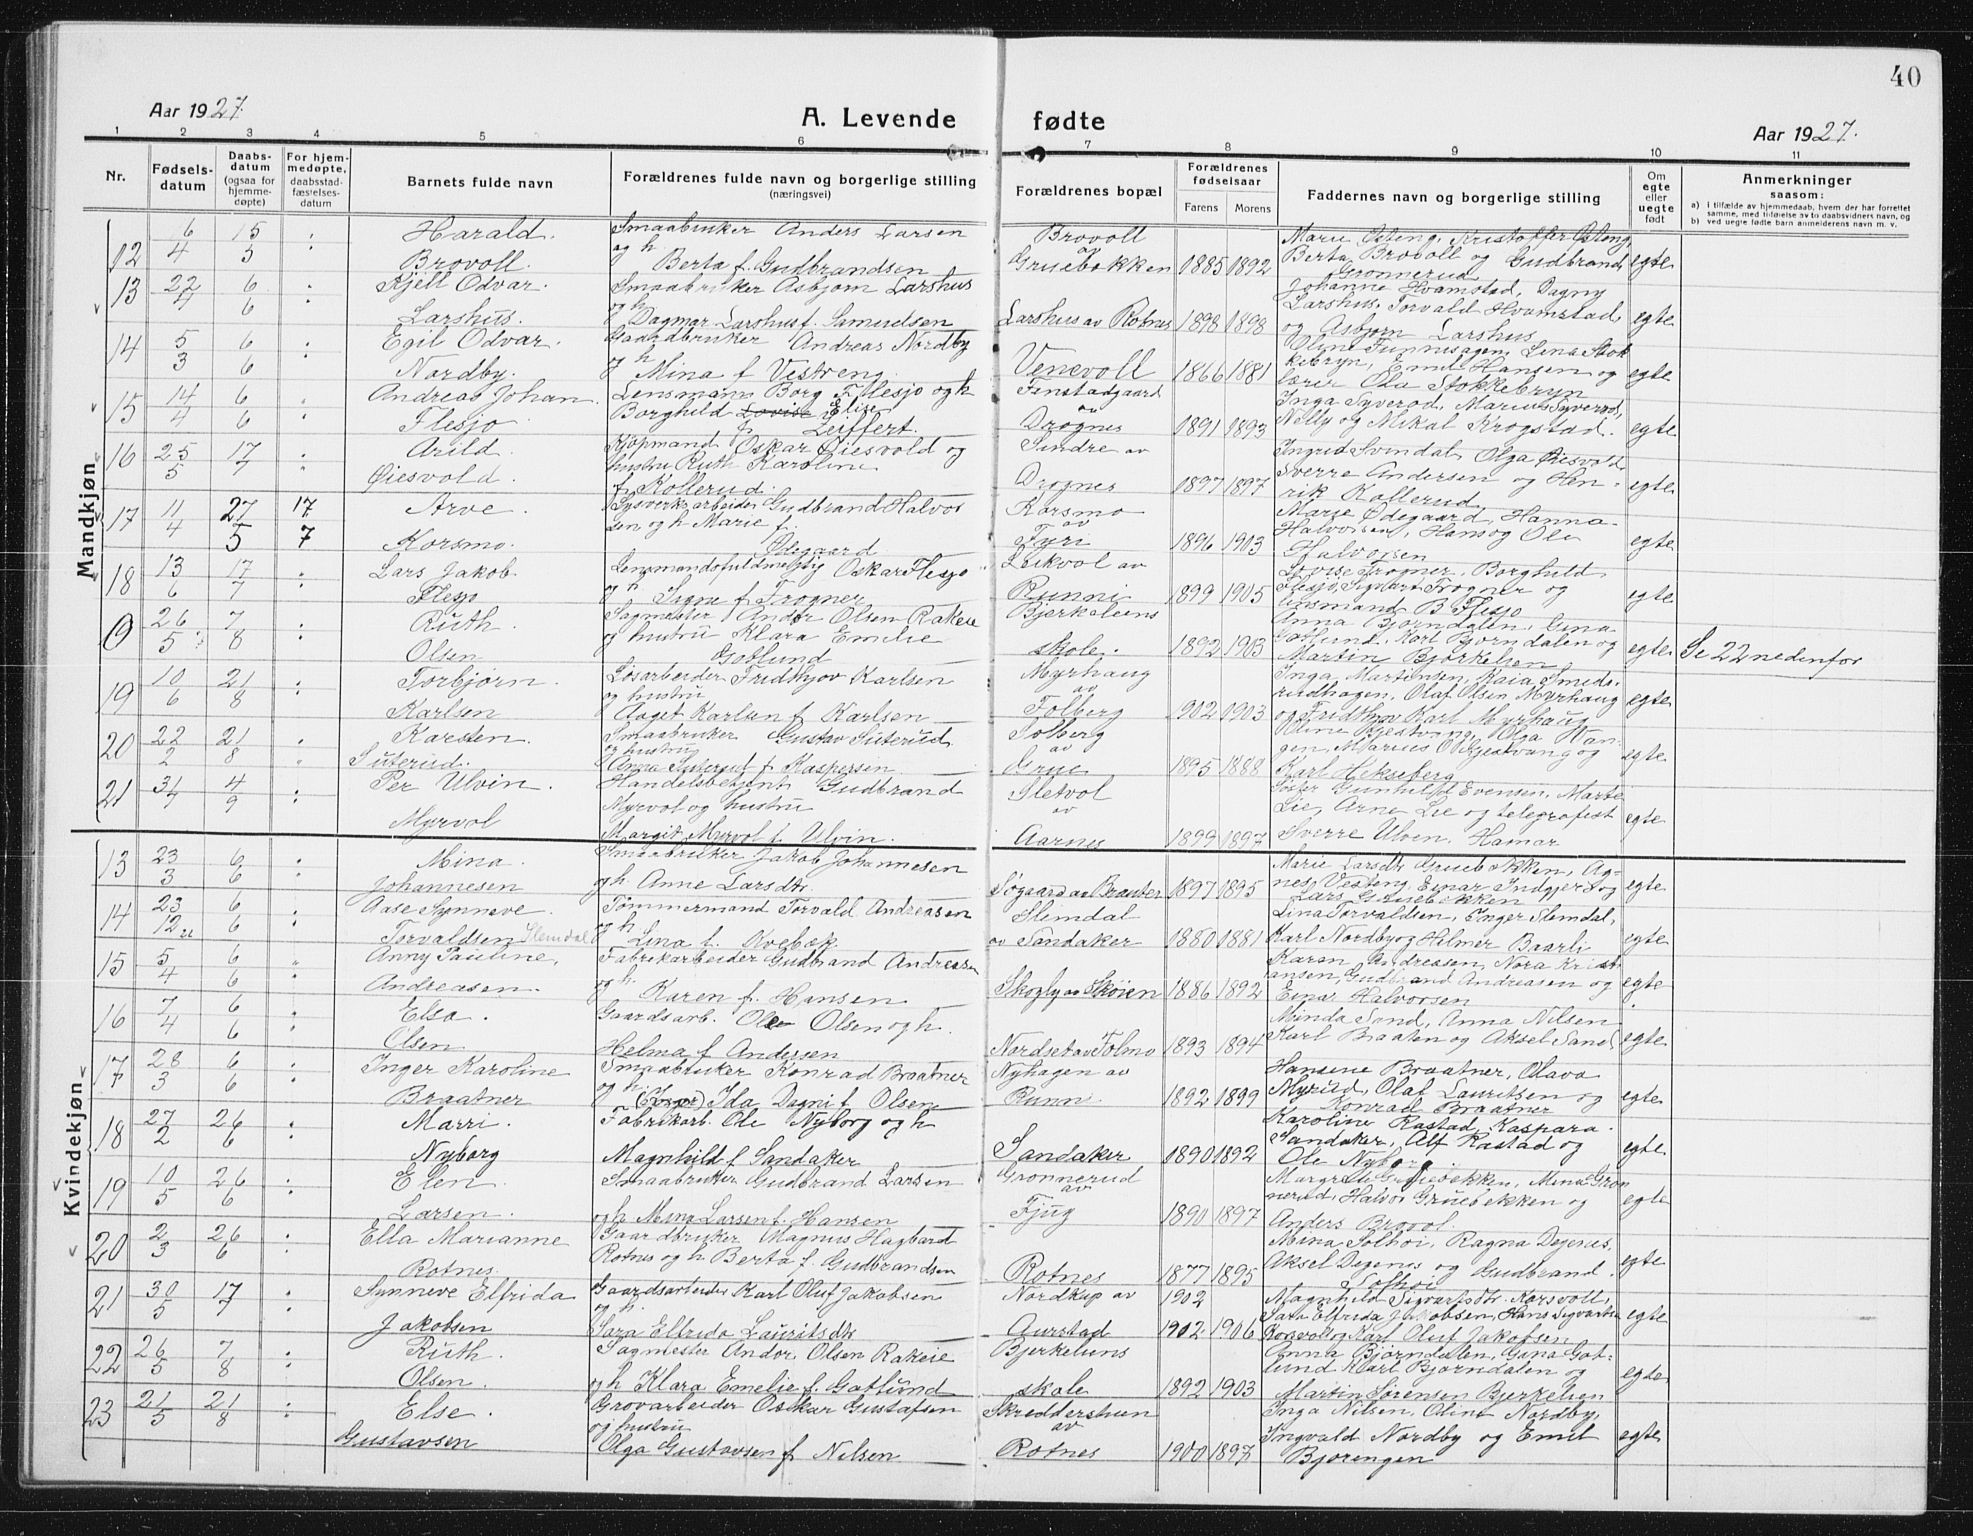 40
Aar 1927.
A. Levende fødte
Aar 1927.
1 2 3 4 5 6 7 8 9 10 11
Nr.
Fødsels-datum
Daabs-datum (ogsaa for hjemme-døpte)
For hjem-medøpte, daabsstad-fæstelses-datum
Barnets fulde navn
Forældrenes fulde navn og borgerlige stilling (næringsvei)
Forældrenes bopæl
Forældrenes fødselsaar
Farens Morens
Faddernes navn og borgerlige stilling
Om egte eller uegte født
Anmerkninger saasom:
a) i tilfælde av hjemmedaab, hvem der har forrettet samme, med tilføielse av to daabsvidners navn, og
b) ved uegte fødte barn anmelderens navn m. v.
Mandkjøn
12 6/4 15/5 : Harald Brovoll.
Smaabruker Anders Larsen og h. Berta f. Gudbrandsen
Brovoll av Gruebakken 1885 1892
Marie Østeng, Kristoffer Østeng, Berta Brovoll og Gudbrand Grønnerud
egte
13 22/4 6/6 : Kjell Odvar. Larshus.
Smaabruker Asbjørn Larshus og h. Dagmar Larshus f. Samuelsen
Larshus av Rotnes 1898 1898
Johanne Hvamstad, Dagny Larshus, Torvald Hvamstad, og Asbjørn Larshus
egte
14 5/3 6/6 : Egil Odvar. Nordby.
Gaardbruker Andreas Nordby og h. Mina f. Vestreng
Venevoll 1866 1881
Emil Hansen og lærer Ola Stokkebryn
egte
15 14/4 6/6 Andreas Johan. Flesjø
Lensmann Borg Flesjø og h Borghild Lovise Elise f. Zeiffert.
Finstadgaard av Drognes 1891 1893
Inga Syverud, Marius Syverud, Nelly og Mikal Krogstad.
egte
16 25/5 17/7 Arild. Øiesvold.
Kjøpmand Oskar Øiesvold og hustru Ruth Karoline f. Kollerud.
Søndre av Drognes 1897 1897
Ingrid Svindal, Olga Øiesvold, Sverre Andersen og Henrik Kollerud
egte
17 11/4 27/5 17/7 Arve. Korsmo.
Gudbrand Halvorsen og h Marie f. Ødegaard
Korsmo av Fyri 1896 1903
Marie Ødegaard, Hanna Halvorsen, Hans og Ole Halvorsen
egte
18 13/6 17/7 : Lars Jakob Flesjø
Lensmandsfuldmegtig Oskar Flesjø og h Signe f. Frogner
Leikvol av Runni 1899 1905
Lovise Frogner, Borghild Flesjø, Sigvart Frogner og lensmand B Flesjø
egte
0 26/5 7/8 : Ruth. Olsen
Sagmester Andor Olsen Rakeie og hustru Klara Emelie Gotlund
Bjerkeleens skole. 1892 1903
Anna Bjørndalen, Guna Gotlund, Karl Bjørndalen og Martin Bjerkelien
egte
Se 22 nedenfor
19 10/6 21/8 : Torbjørn. Karlsen
Løsarbeider Fridthjov Karlsen og hustru Aagot Karlsen f. Karlsen
Myrhaug av Folberg 1902 1903
Inga Martinsen, Kaia Smederudhagen, Olaf Olsen Myrhaug og Fridthjov Karl Myrhaug
egte
20 22/2 21/8 Karsten. Suterud.
Smaabruker Gustav Suterud og hustru Anna Suterud f. Kaspersen
Solberg av Grue 1895 1888
Oline Gjestvang, Olga Wangen, Marius Gjestvang og Karl Hekseberg
egte
21 31/7 4/9 : Per Ulvin. Myrvol
Handelsbetjent Gudbrand Myrvol og hustru Margit Myrvol f. Ulvin.
Sletvol av Aarnes 1899 1897
Søster Gunhild Evensen, Marte Lie, Arne Lie og telegrafist Sverre Ulven, Hamar
egte
Kvindekjøn
13 23/3 6/6 : Mina. Johannesen
Smaabruker Jakob Johannesen og h. Anne Larsdtr.
Søgaard av Brauter 1897 1895
Marie Larsdtr. Gruebekken, Agnes Vesteng, Einar Indgjer og Lars Gruebekken
egte
14 23/12 26 6/6 : Aase Synneve. Torvaldsen Slemdal
Tømmermand Torvald Andreasen og h. Lina f. Kvebæk
Slemdal av Sandaker 1880 1881
Lina Torvaldsen, Inger Slemdal, Karl Nordby og Helmer Baarli
egte
15 5/4 6/6 Anny Pauline. Andreasen.
Fabrikarbeider Gudbrand Andreasen og h. Karen f. Hansen
Skogly av Skøien 1886 1892
Karen Andreasen, Nora Kristiansen, Gudbrand Andreasen og Einar Halvorsen
egte
16 7/4 6/6 : Elsa. Olsen.
Gaardsarb. Ole Olsen og h. Helma f. Andersen
Nordset av Folmo 1893 1894
Minda Sand, Anna Nilsen Karl Braaten og Aksel Sand
egte
17 28/3 6/6 : Inger Karoline Braatner
Smaabruker Konrad Braatner og h. Ida Dagni f. Olsen
Nyhagen av Runn. 1892 1899
Hansine Braatner, Olava Myrud, Olaf Lauritsen og Konrad Braatner
egte
18 27/2 26/6 : Marri. Nyborg
Fabrikarb. Ole Nyborg og h Magnhild f Sandaker
Sandaker 1890 1892
Karoline Rastad, Kaspara Sandaker, Alf Rastad og Ole Nyborg.
egte
19 10/5 26/6 : Elen. Larsen.
Smaabruker Gudbrand Larsen og h Mina Larsen f. Hansen
Grønnerud av Fjug 1890 1897
Margrete Gruebekken, Mina Grønnerud, Halvor Gruebekken og Anders Brovol.
egte
20 2/3 26/6 Ella Marianne Rotnes.
Gaardbruker Magnus Hagbard Rotnes og h Berta f. Gudbrandsen
Rotnes 1877 1895
Mina Solhøi, Ragna Degnes, Aksel Degnes og Gudbrand Solhøi
egte
21 30/5 17/7 : Synneve Elfrida Jakobsen
Gaardsarbeider Karl Oluf Jakobsen og h. Sara Elfrida Lauritsdtr
Nordkup av Aurstad 1902 1902 1906
Magnhild Sigvartsdtr. Korsvoll, Sara Elfrida Jakobsen, Hans Sigvartsen Korsvold og Karl Oluf Jakobsen
egte
22 26/5 7/8 : Ruth. Olsen.
Sagmester Andor Olsen Rakeie og h Klara Emelie f. Gotlund
Bjerkeliens skole 1892 1903
Anna Bjørndalen, Guna Gotlund Karl Bjørndalen og Martin Sørensen Bjerkelien
egte
23 21/5 21/8 : Else. Gustavsen
Grovarbeider Oskar Gustafsen og hustru Olga Gustavsen f Nilsen
Skreddershuen av Rotnes 1900 1897
Inga Nilsen, Oline Nordby, Ingvald Nordby og Emil Bjørengen
egte